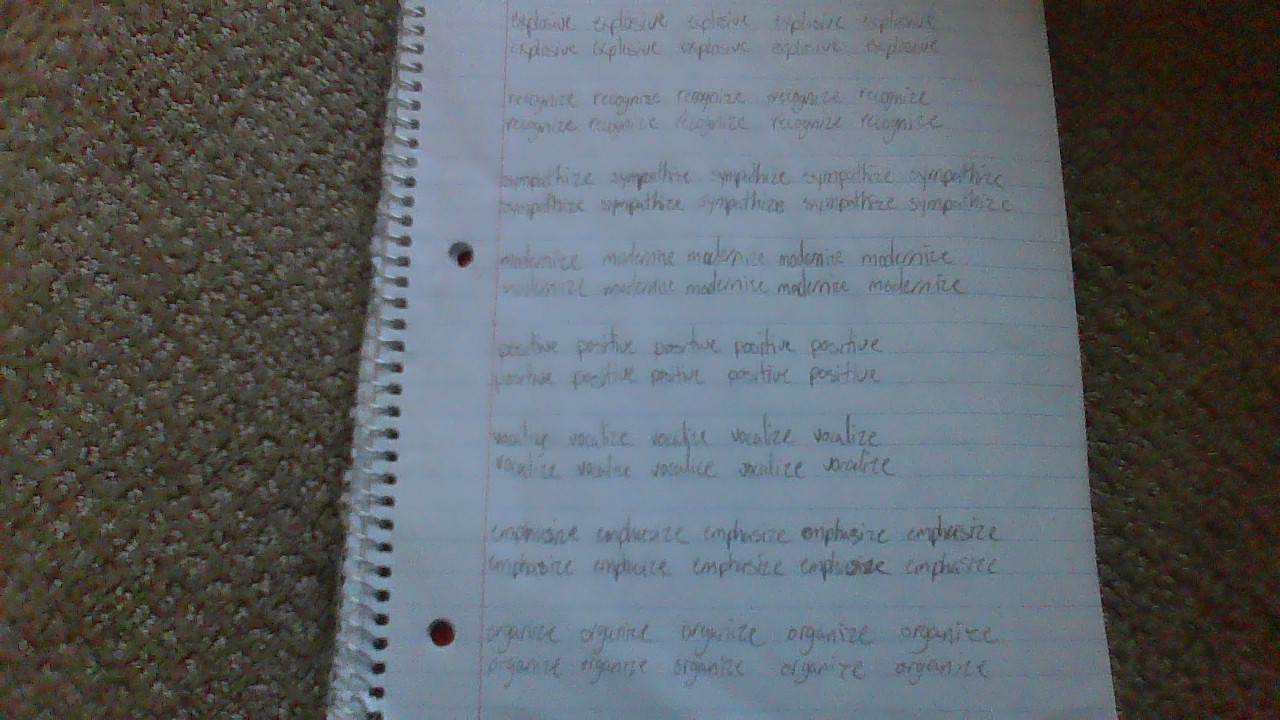 explosive explosive explosive explosive explosive
explosive explosive explosive explosive explosive
recognize recognize recognize recognize recognize
recognize recognize recognize recognize recognize
sympathize sympathize sympathize sympathize sympathize
sympathize sympathize sympathize sympathize sympathize
modernize modernize modernize modernize modernize
modernize modernize modernize modernize modernize
positive positive positive positive positive
positive positive positive positive positive
vocalize vocalize vocalize vocalize vocalize
vocalize vocalize vocalize vocalize vocalize
emphasize emphasize emphasize emphasize emphasize
emphasize emphasize emphasize emphasize emphasize
organize organize organize organize organize
organize organize organize organize organize